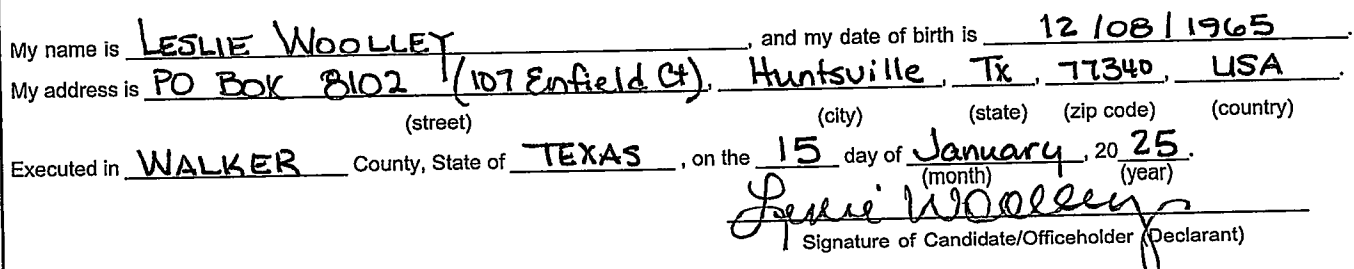 My name is LESLIE WOOLLEY, and my date of birth is 12/08/1965.
My address is PO BOX 8102 (107 Enfield Ct), Huntsville, Tx, 77340, USA.
(street) (city) (state) (zip code) (country)
Executed in WALKER County, State of TEXAS, on the 15 day of January, 20 25.
(month) (year)
Leslie Woolley
Signature of Candidate/Officeholder (Declarant)